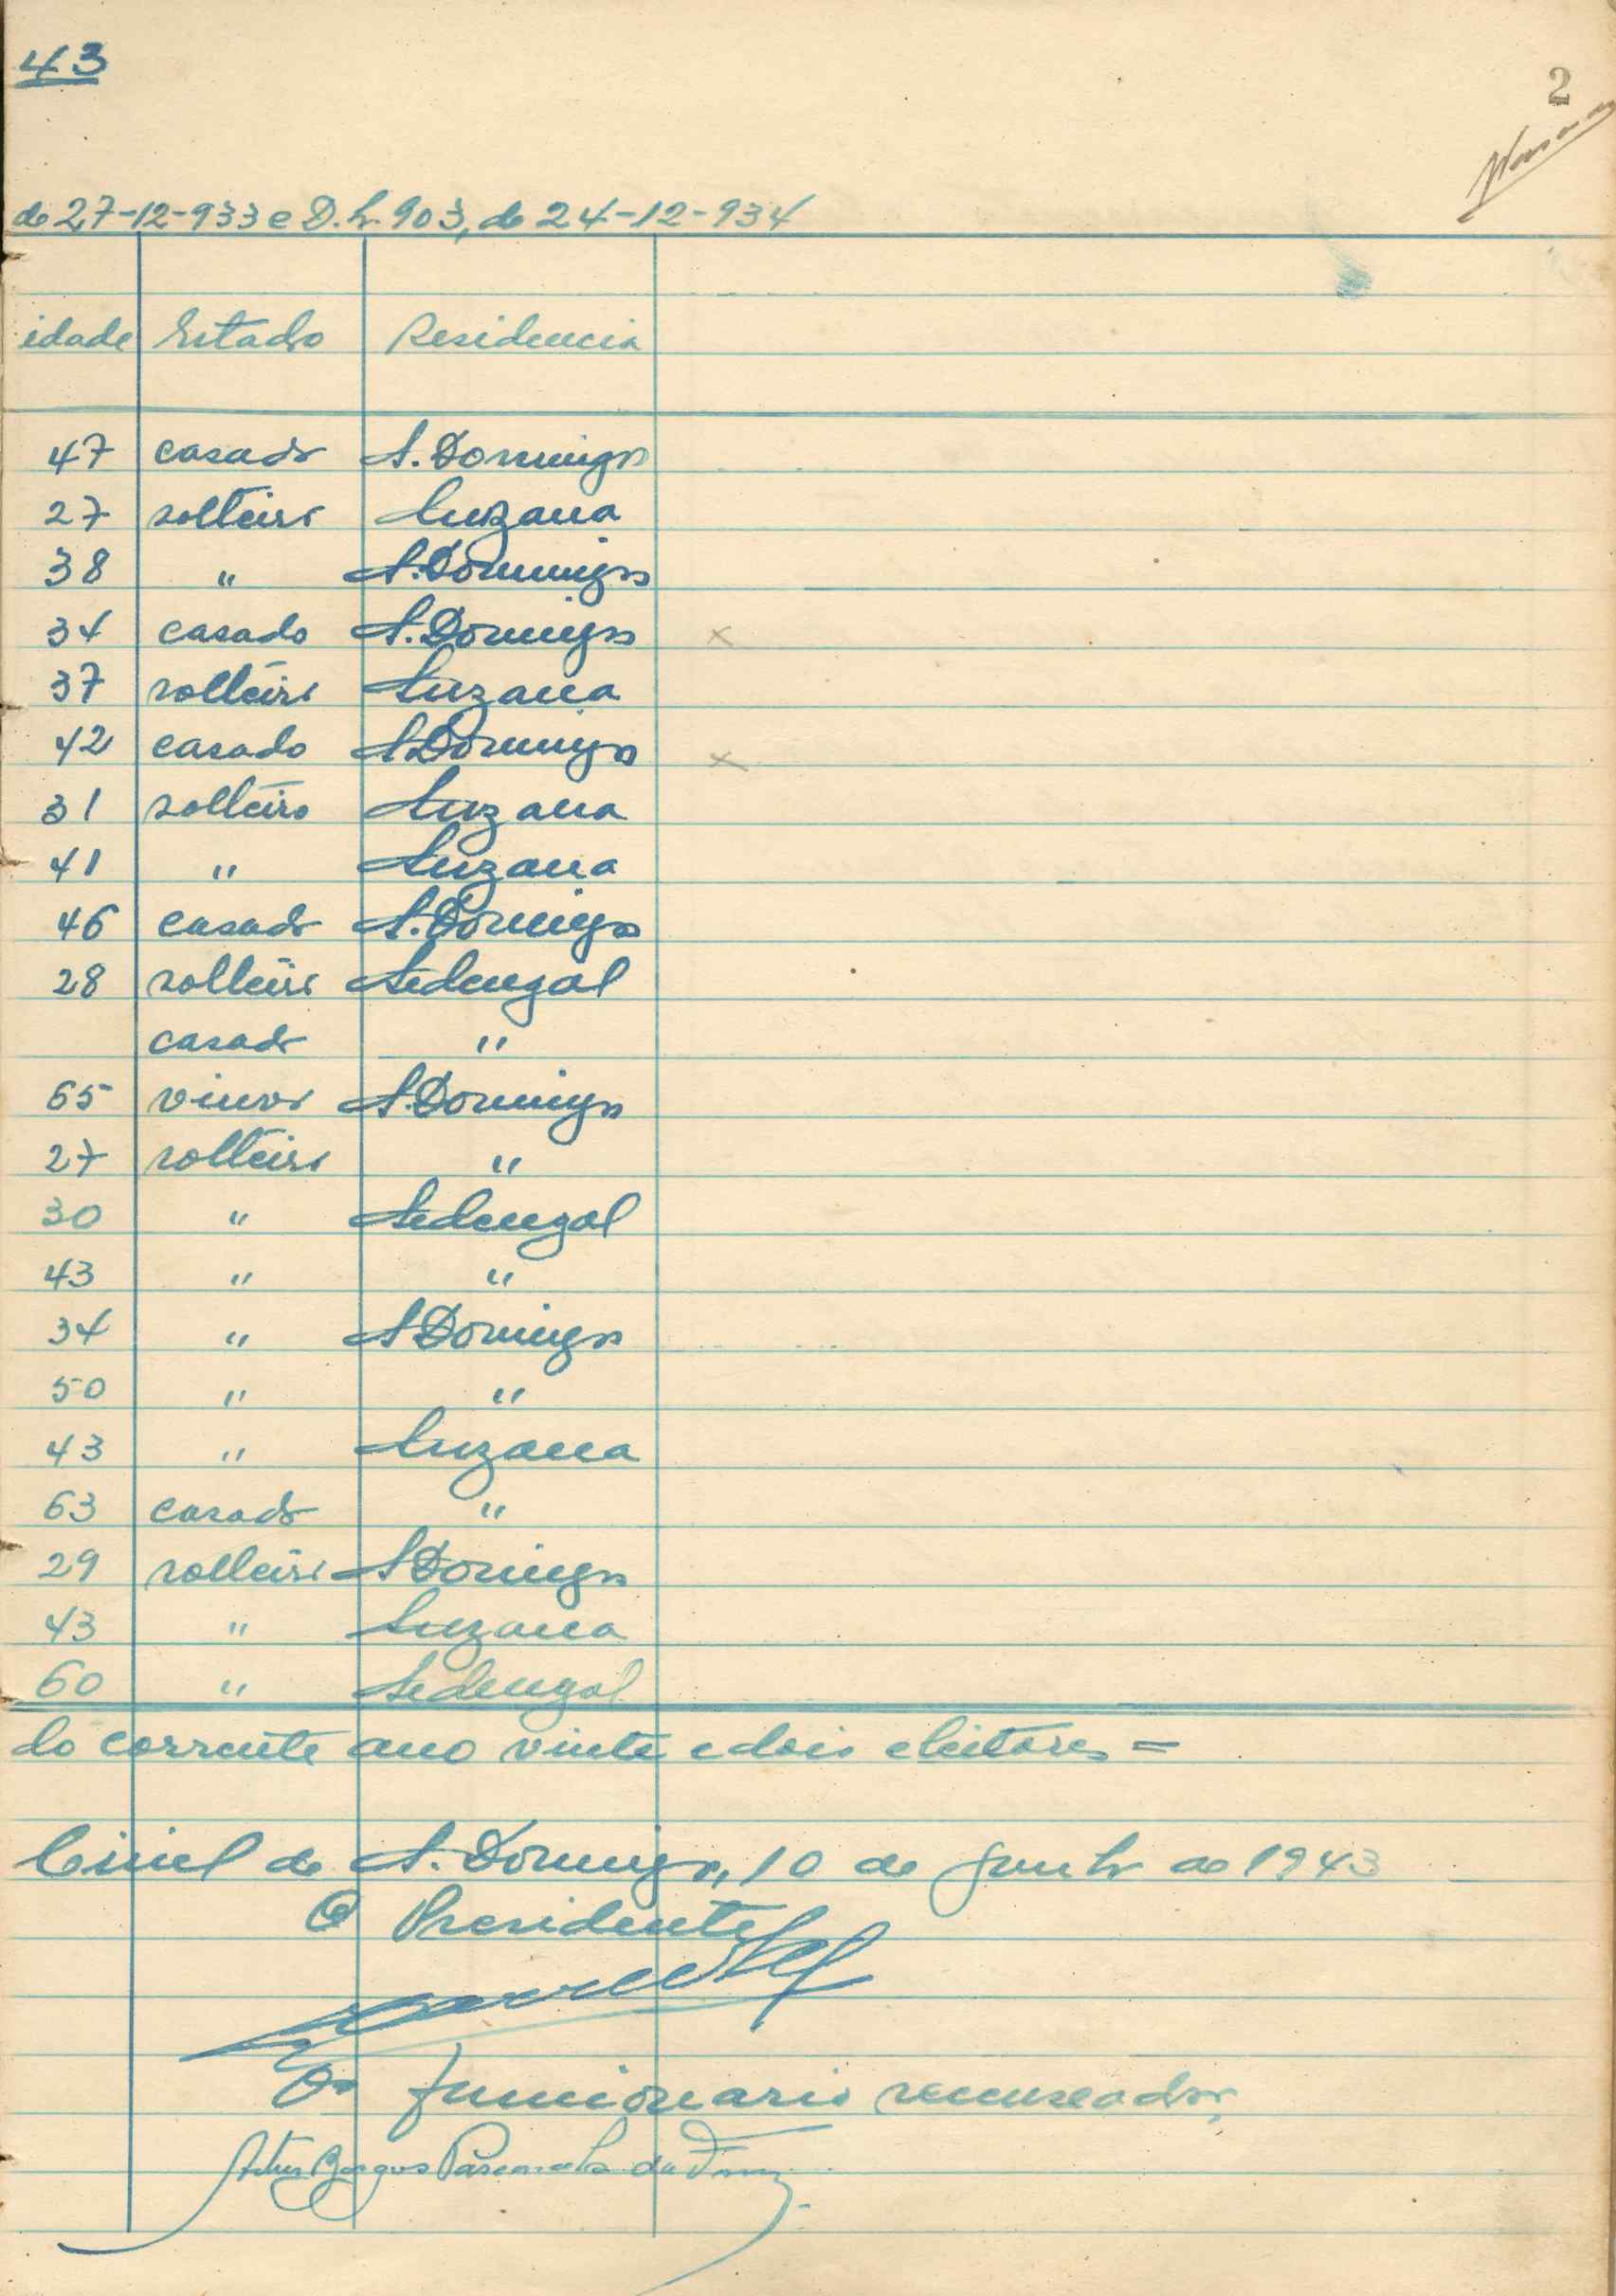 43
2
de 27-12-933 e D. L. 903, de 24-12-934
idade Estado Residencia
47 casado S. Domingos
27 solteiro Suzana
38 " S. Domingos
34 casado S. Domingos x
37 solteiro Suzana
42 casado S. Domingos x
31 solteiro Suzana
41 " Suzana
46 casado S. Domingos
28 solteiro Sedengal
casado "
65 viuvo S. Domingos
27 solteiro "
30 " Sedengal
43 " "
34 " S. Domingos
50 " "
43 " Suzana
63 casado "
29 solteiro S. Domingos
43 " Suzana
60 " Sedengal
do corrente ano vinte e dois eleitores =
Civil de S. Domingos, 10 de Junho de 1943
O Presidente
O funcionario recenseador,
Artur Borges